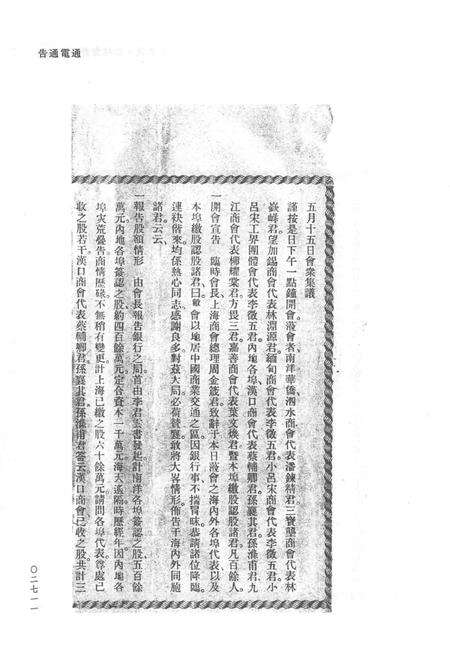 告通電通
五月十五日會業集議
謹按是日下午一點鐘開會蒞會者南洋華僑泗水商會代表潘鍊精君三寶壟商會代表林
嶽峰君望加錫商會代表林淵源君緬甸商會代表李徵五君小呂宋商會代表李徵五君小
呂宋工界團體會代表李徵五君內地各埠漢口商會代表蔡輔卿君孫襄其君孫滌甫君九
江商會代表柳燿棠君方畏三君嘉善商會代表葉文煥君暨本埠繳股認股諸君凡百餘人
一開會宣告 臨時會長上海商會總理周金箴君致辭于本日蒞會之海內外各埠代表以及
本埠繳股認股諸君曰敝會以地居中國商業交通之區因銀行事不揣冒昧恭請諸位降臨
連袂偕來均係熱心同志感謝良多對茲大局必荷贊襄敢將大畧情形佈告于海內外同胞
諸君云云
一報告股額情形 由會長報告銀行之局首由李君雲書發起計南洋各埠簽認之股五百餘
萬元內地各埠簽認之股約四百餘萬元定合資本一千萬元海天遙隔時歷經年因內地各
埠灾荒疊告商情歷碌不無稍有變更計上海已繳之股六十餘萬元請問各埠代表尊處已
收之股若干漢口商會代表蔡輔卿君孫襄其君孫滌甫君答云漢口商會已收之股共計三
〇二七一一